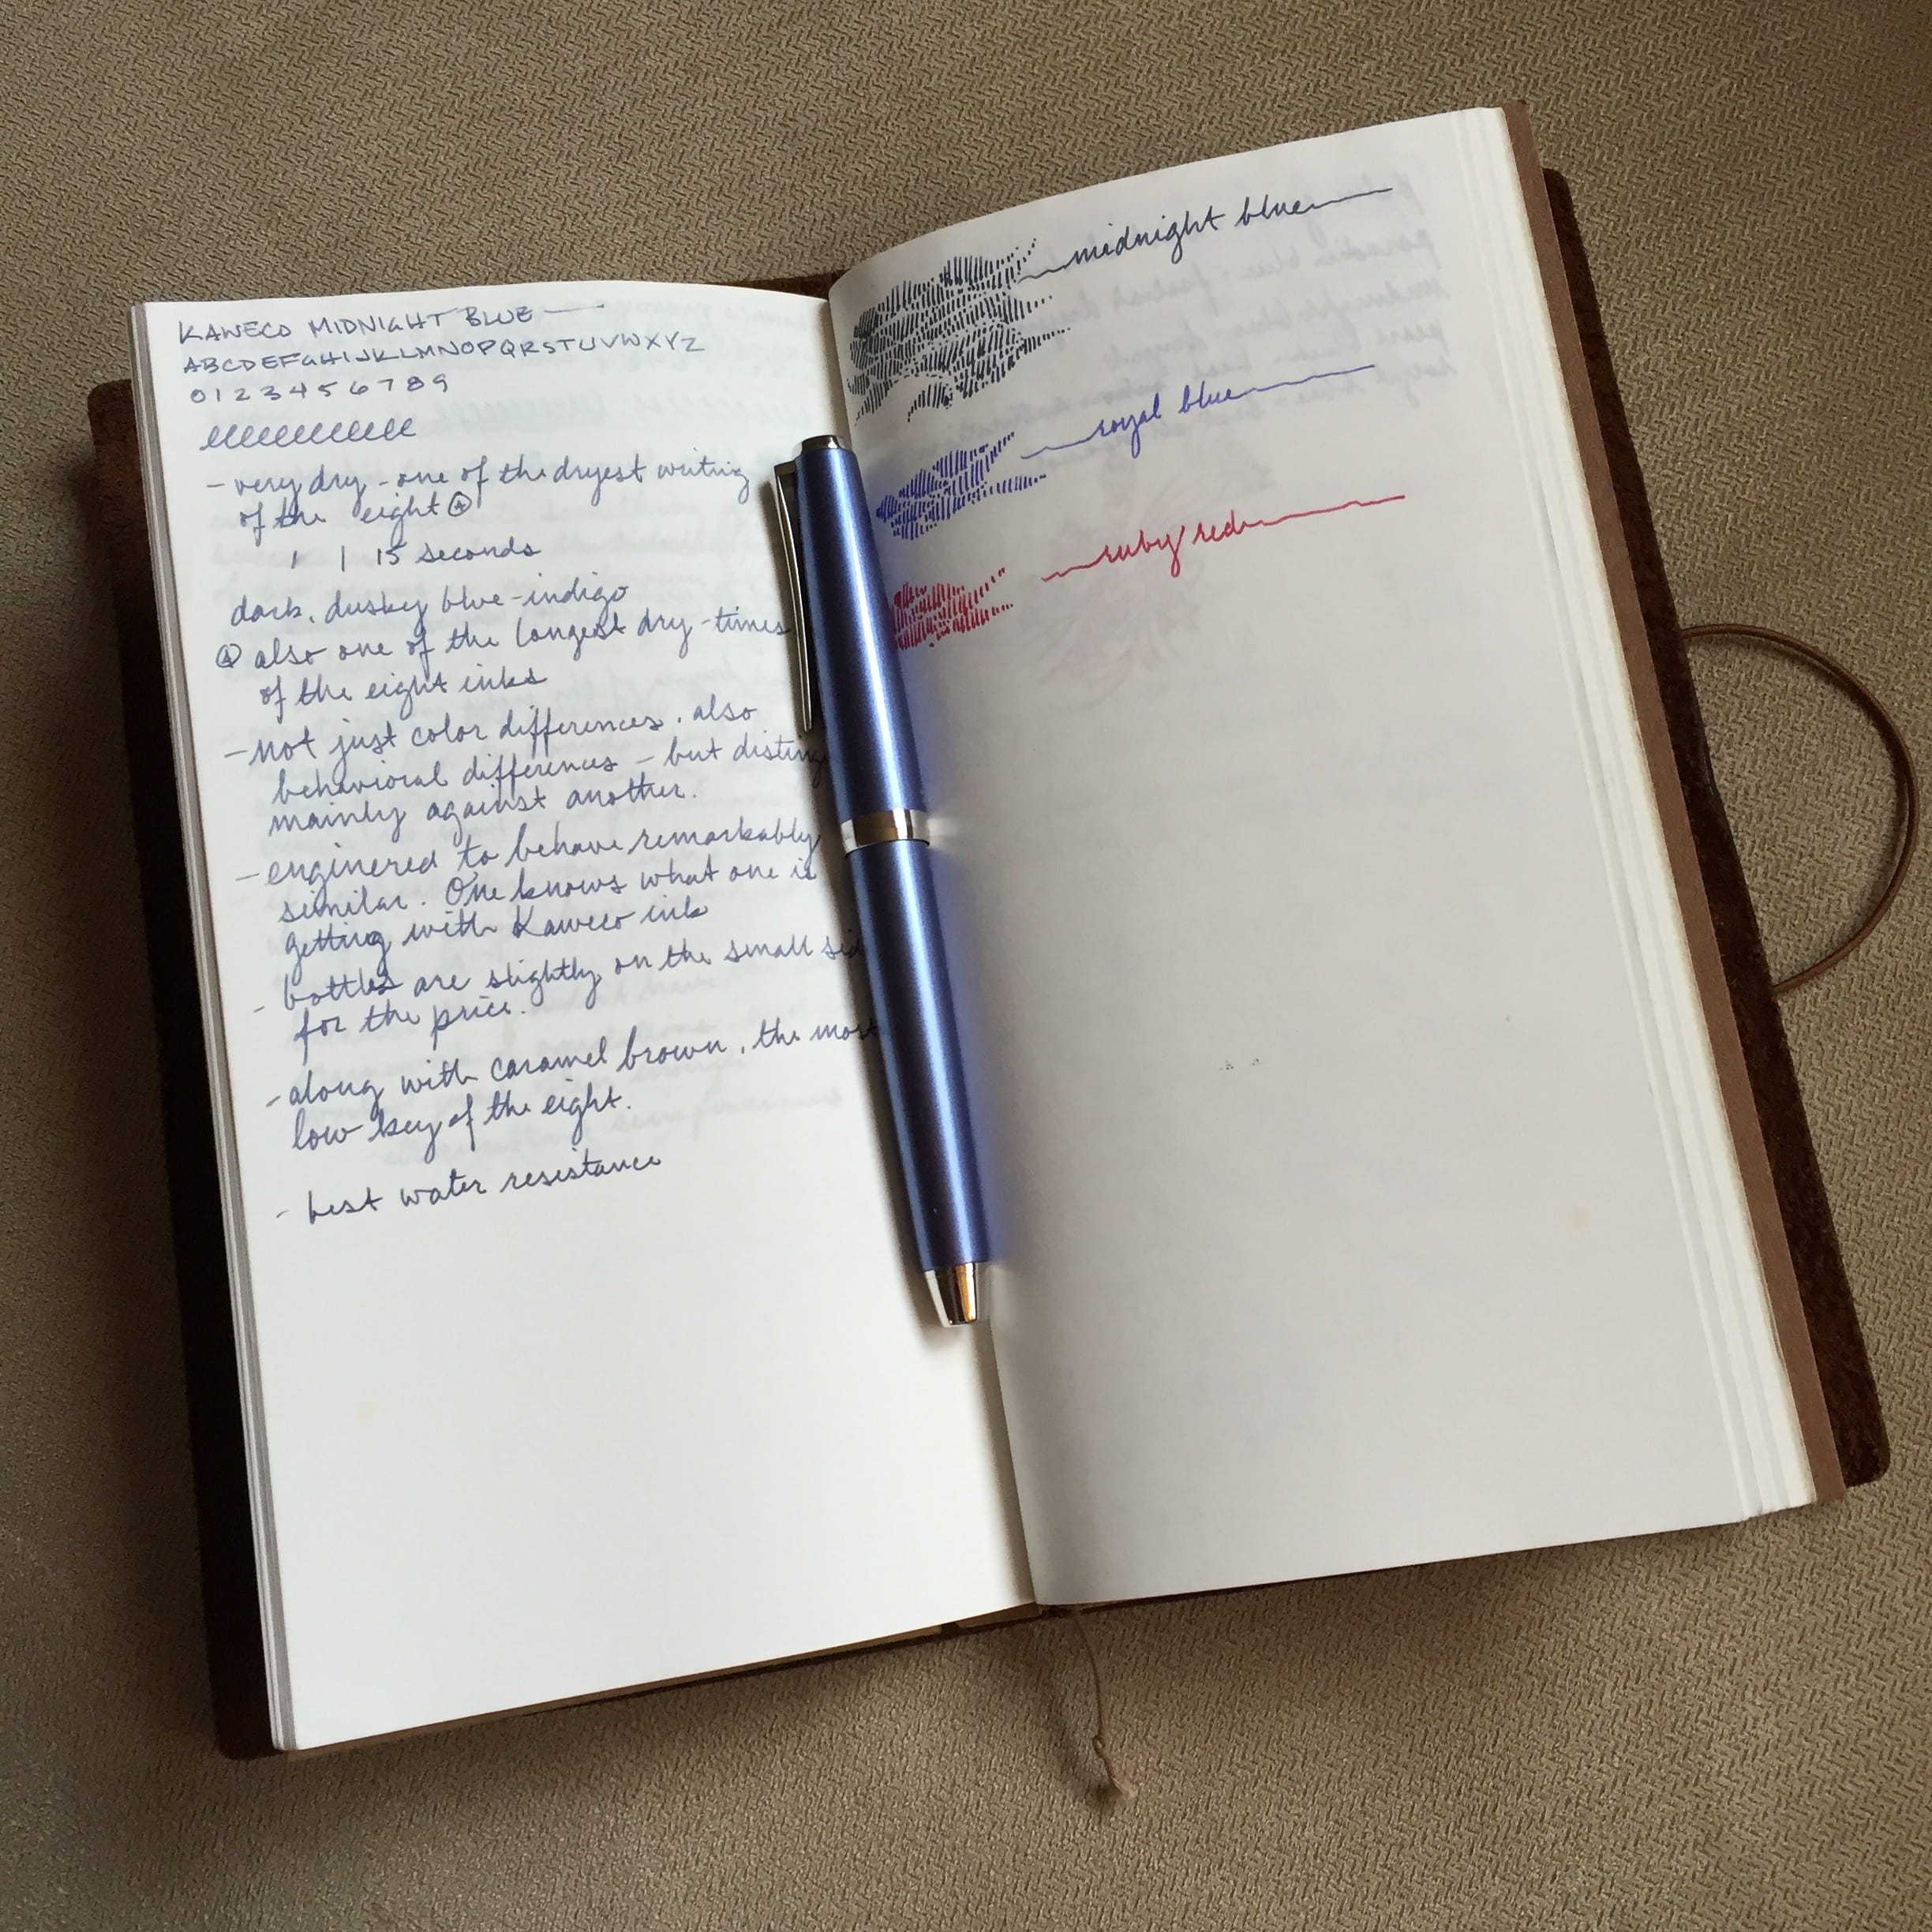 KAWECO MIDNIGHT BLUE
ABCDEFGHIJKLMNOPQRSTUVWXYZ
0123456789
- very dry - one of the dryest writing
of the eight
15 seconds
dark, dusky blue-indigo
also one of the longest dry-times
of the eight inks
- not just color differences, also
behavioral differences - but disting
mainly against another.
- enginered to behave remarkably
similar. One knows what one is
getting with Kaweco ink
- bottles are slightly on the small sid
for the price.
- along with caramel brown, the most
low key of the eight.
- best water resistance
midnight blue
royal blue
ruby red